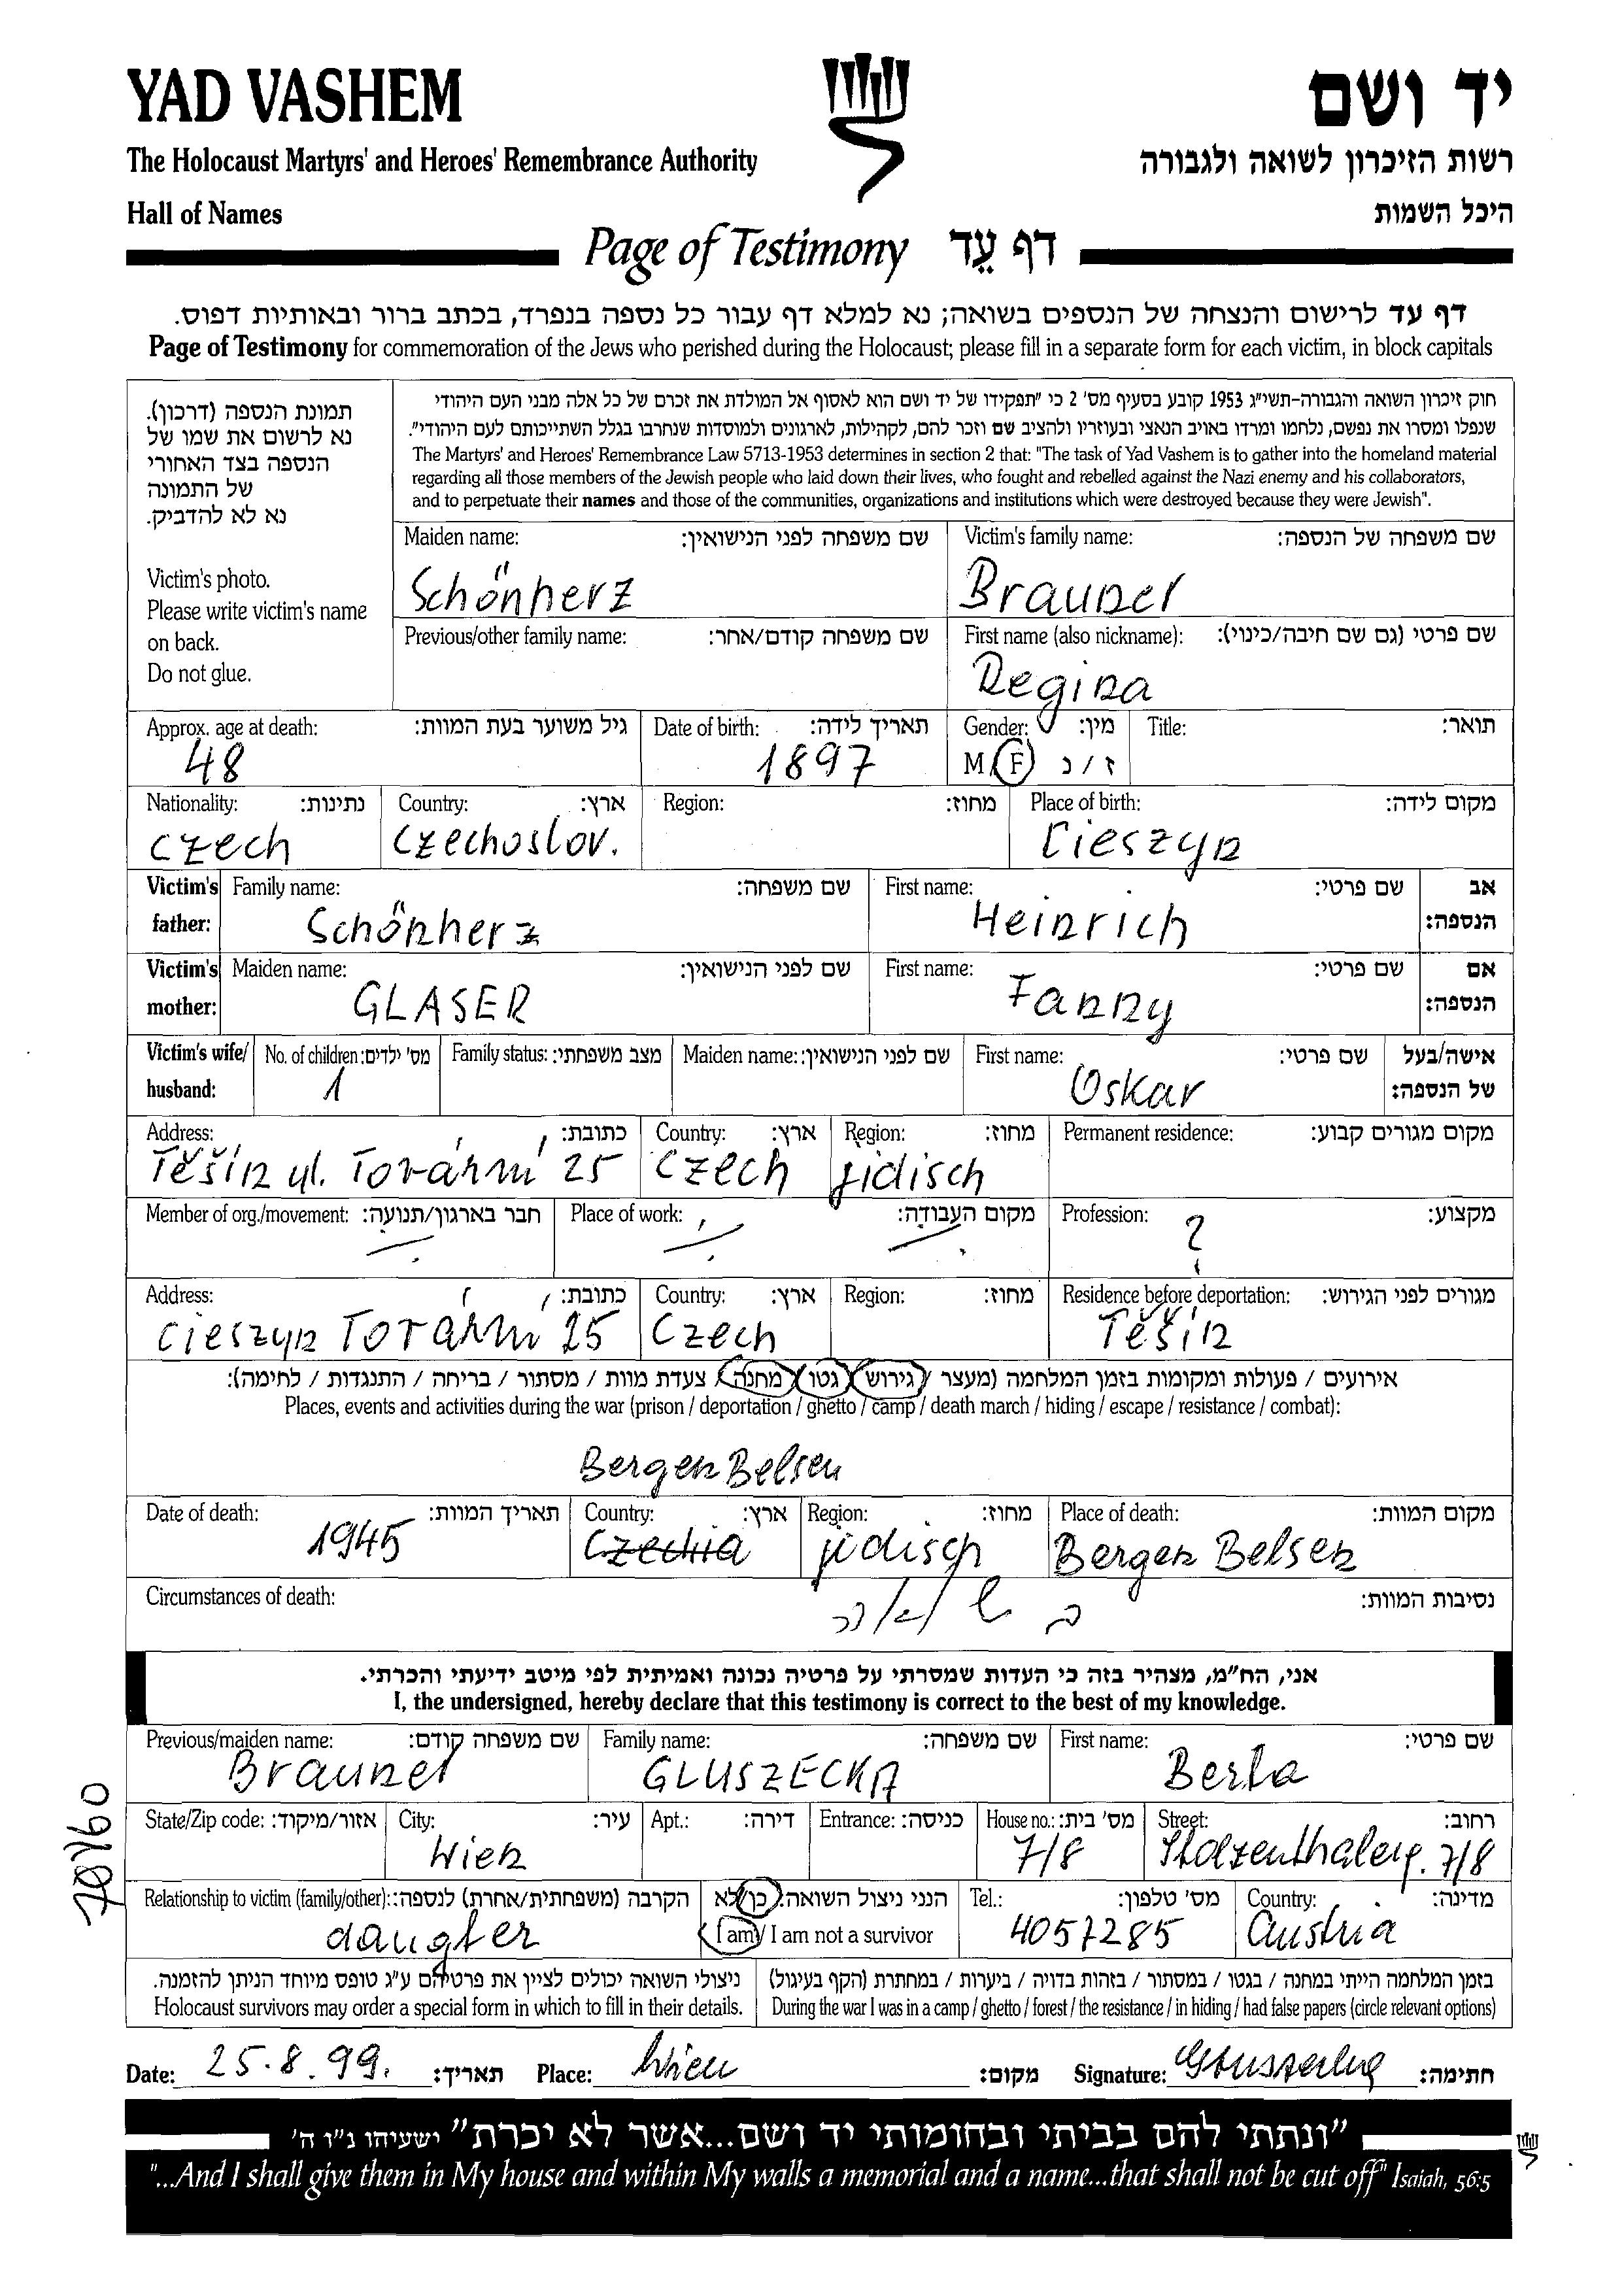 YAD VASHEM
יד ושם
The Holocaust Martyrs' and Heroes' Remembrance Authority
רשות הזיכרון לשואה ולגבורה
Hall of Names
היכל השמות
Page of Testimony דף עֵד
דף עד לרישום והנצחה של הנספים בשואה; נא למלא דף עבור כל נספה בנפרד, בכתב ברור ובאותיות דפוס.
Page of Testimony for commemoration of the Jews who perished during the Holocaust; please fill in a separate form for each victim, in block capitals
תמונת הנספה (דרכון).
נא לרשום את שמו של
הנספה בצד האחורי
של התמונה
נא לא להדביק.
Victim's photo.
Please write victim's name
on back.
Do not glue.
חוק זיכרון השואה והגבורה-תשי"ג 1953 קובע בסעיף מס' 2 כי "תפקידו של יד ושם הוא לאסוף אל המולדת את זכרם של כל אלה מבני העם היהודי
שנפלו ומסרו את נפשם, נלחמו ומרדו באויב הנאצי ובעוזריו ולהציב שם וזכר להם, לקהילות, לארגונים ולמוסדות שנחרבו בגלל השתייכותם לעם היהודי".
The Martyrs' and Heroes' Remembrance Law 5713-1953 determines in section 2 that: "The task of Yad Vashem is to gather into the homeland material
regarding all those members of the Jewish people who laid down their lives, who fought and rebelled against the Nazi enemy and his collaborators,
and to perpetuate their names and those of the communities, organizations and institutions which were destroyed because they were Jewish".
Maiden name: שם משפחה לפני הנישואין:
Schönherz
Victim's family name: שם משפחה של הנספה:
Brauner
Previous/other family name: שם משפחה קודם/אחר:
First name (also nickname): שם פרטי (גם שם חיבה/כינוי):
Regina
Approx. age at death: גיל משוער בעת המוות:
48
Date of birth: תאריך לידה:
1897
Gender: מין:
M/F ז / נ
Title: תואר:
Nationality: נתינות:
Czech
Country: ארץ:
Czechoslov.
Region: מחוז:
Place of birth: מקום לידה:
Cieszyn
Victim's father:
Family name: שם משפחה:
Schönherz
First name: שם פרטי:
Heinrich
אב הנספה:
Victim's mother:
Maiden name: שם לפני הנישואין:
GLASER
First name: שם פרטי:
Fanny
אם הנספה:
Victim's wife/ husband:
No. of children: מס' ילדים:
1
Family status: מצב משפחתי:
Maiden name: שם לפני הנישואין:
First name: שם פרטי:
Oskar
אישה/בעל של הנספה:
Address: כתובת:
Těšín ul. Tovární 25
Country: ארץ:
Czech
Region: מחוז:
jidisch
Permanent residence: מקום מגורים קבוע:
Member of org./movement: חבר בארגון/תנועה:
Place of work: מקום העבודה:
Profession: מקצוע:
?
Address: כתובת:
Cieszyn Tovární 25
Country: ארץ:
Czech
Region: מחוז:
Residence before deportation: מגורים לפני הגירוש:
Těšín
אירועים / פעולות ומקומות בזמן המלחמה (מעצר / גירוש / גטו / מחנה / צעדת מוות / מסתור / בריחה / התנגדות / לחימה):
Places, events and activities during the war (prison / deportation / ghetto / camp / death march / hiding / escape / resistance / combat):
Bergen Belsen
Date of death: תאריך המוות:
1945
Country: ארץ:
Czechia
Region: מחוז:
jidisch
Place of death: מקום המוות:
Bergen Belsen
Circumstances of death: נסיבות המוות:
אני, הח"מ, מצהיר בזה כי העדות שמסרתי על פרטיה נכונה ואמיתית לפי מיטב ידיעתי והכרתי.
I, the undersigned, hereby declare that this testimony is correct to the best of my knowledge.
Previous/maiden name: שם משפחה קודם:
Brauner
Family name: שם משפחה:
GLUSZECKA
First name: שם פרטי:
Berta
State/Zip code: אזור/מיקוד:
City: עיר:
Wien
Apt.: דירה:
Entrance: כניסה:
House no.: מס' בית:
7/8
Street: רחוב:
Stolzenthalerg. 7/8
Relationship to victim (family/other): הקרבה (משפחתית/אחרת) לנספה:
daugter
הנני ניצול השואה: כן/לא
I am / I am not a survivor
Tel.: מס' טלפון:
4057285
Country: מדינה:
Austria
ניצולי השואה יכולים לציין את פרטיהם ע"ג טופס מיוחד הניתן להזמנה.
Holocaust survivors may order a special form in which to fill in their details.
בזמן המלחמה הייתי במחנה / בגטו / במסתור / בזהות בדויה / ביערות / במחתרת (הקף בעיגול)
During the war I was in a camp / ghetto / forest / the resistance / in hiding / had false papers (circle relevant options)
Date: 25.8.99. תאריך: Place: Wien מקום: Signature: חתימה:
"ונתתי להם בביתי ובחומותי יד ושם...אשר לא יכרת" ישעיהו נ"ו ה'
"...And I shall give them in My house and within My walls a memorial and a name...that shall not be cut off" Isaiah, 56:5